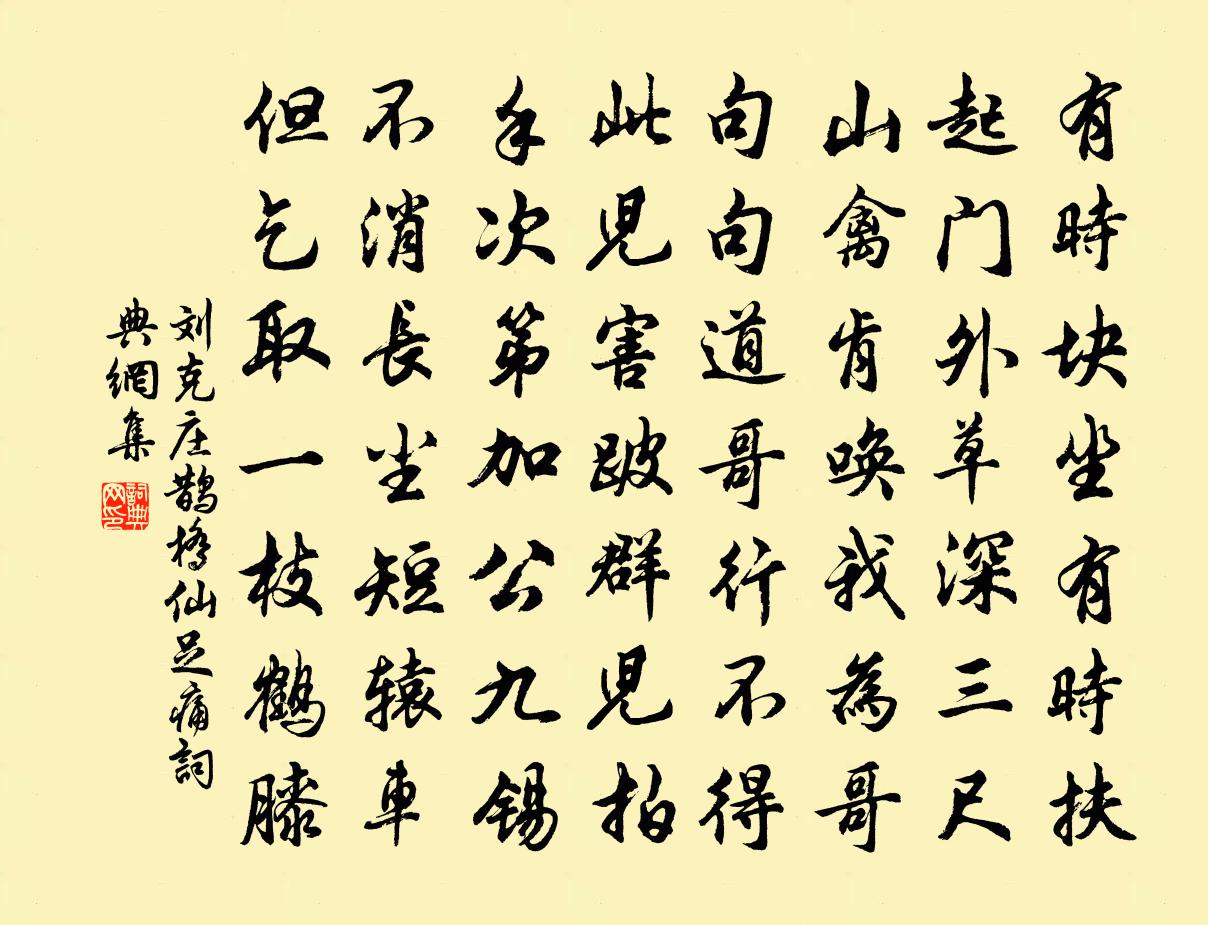 有時块坐有時扶
起门外草深三尺
山禽肯唤我為哥
句句道哥行不得
此児害跛群児拍
手次第加公九锡
不消長尘短辕車
但乞取一枝鶴膝
刘克庄鵲橋仙足痛詞
典網集
詞典网印